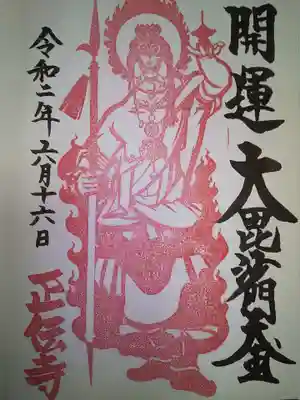 開運 大毘沙門天
令和二年六月十六日
正伝寺